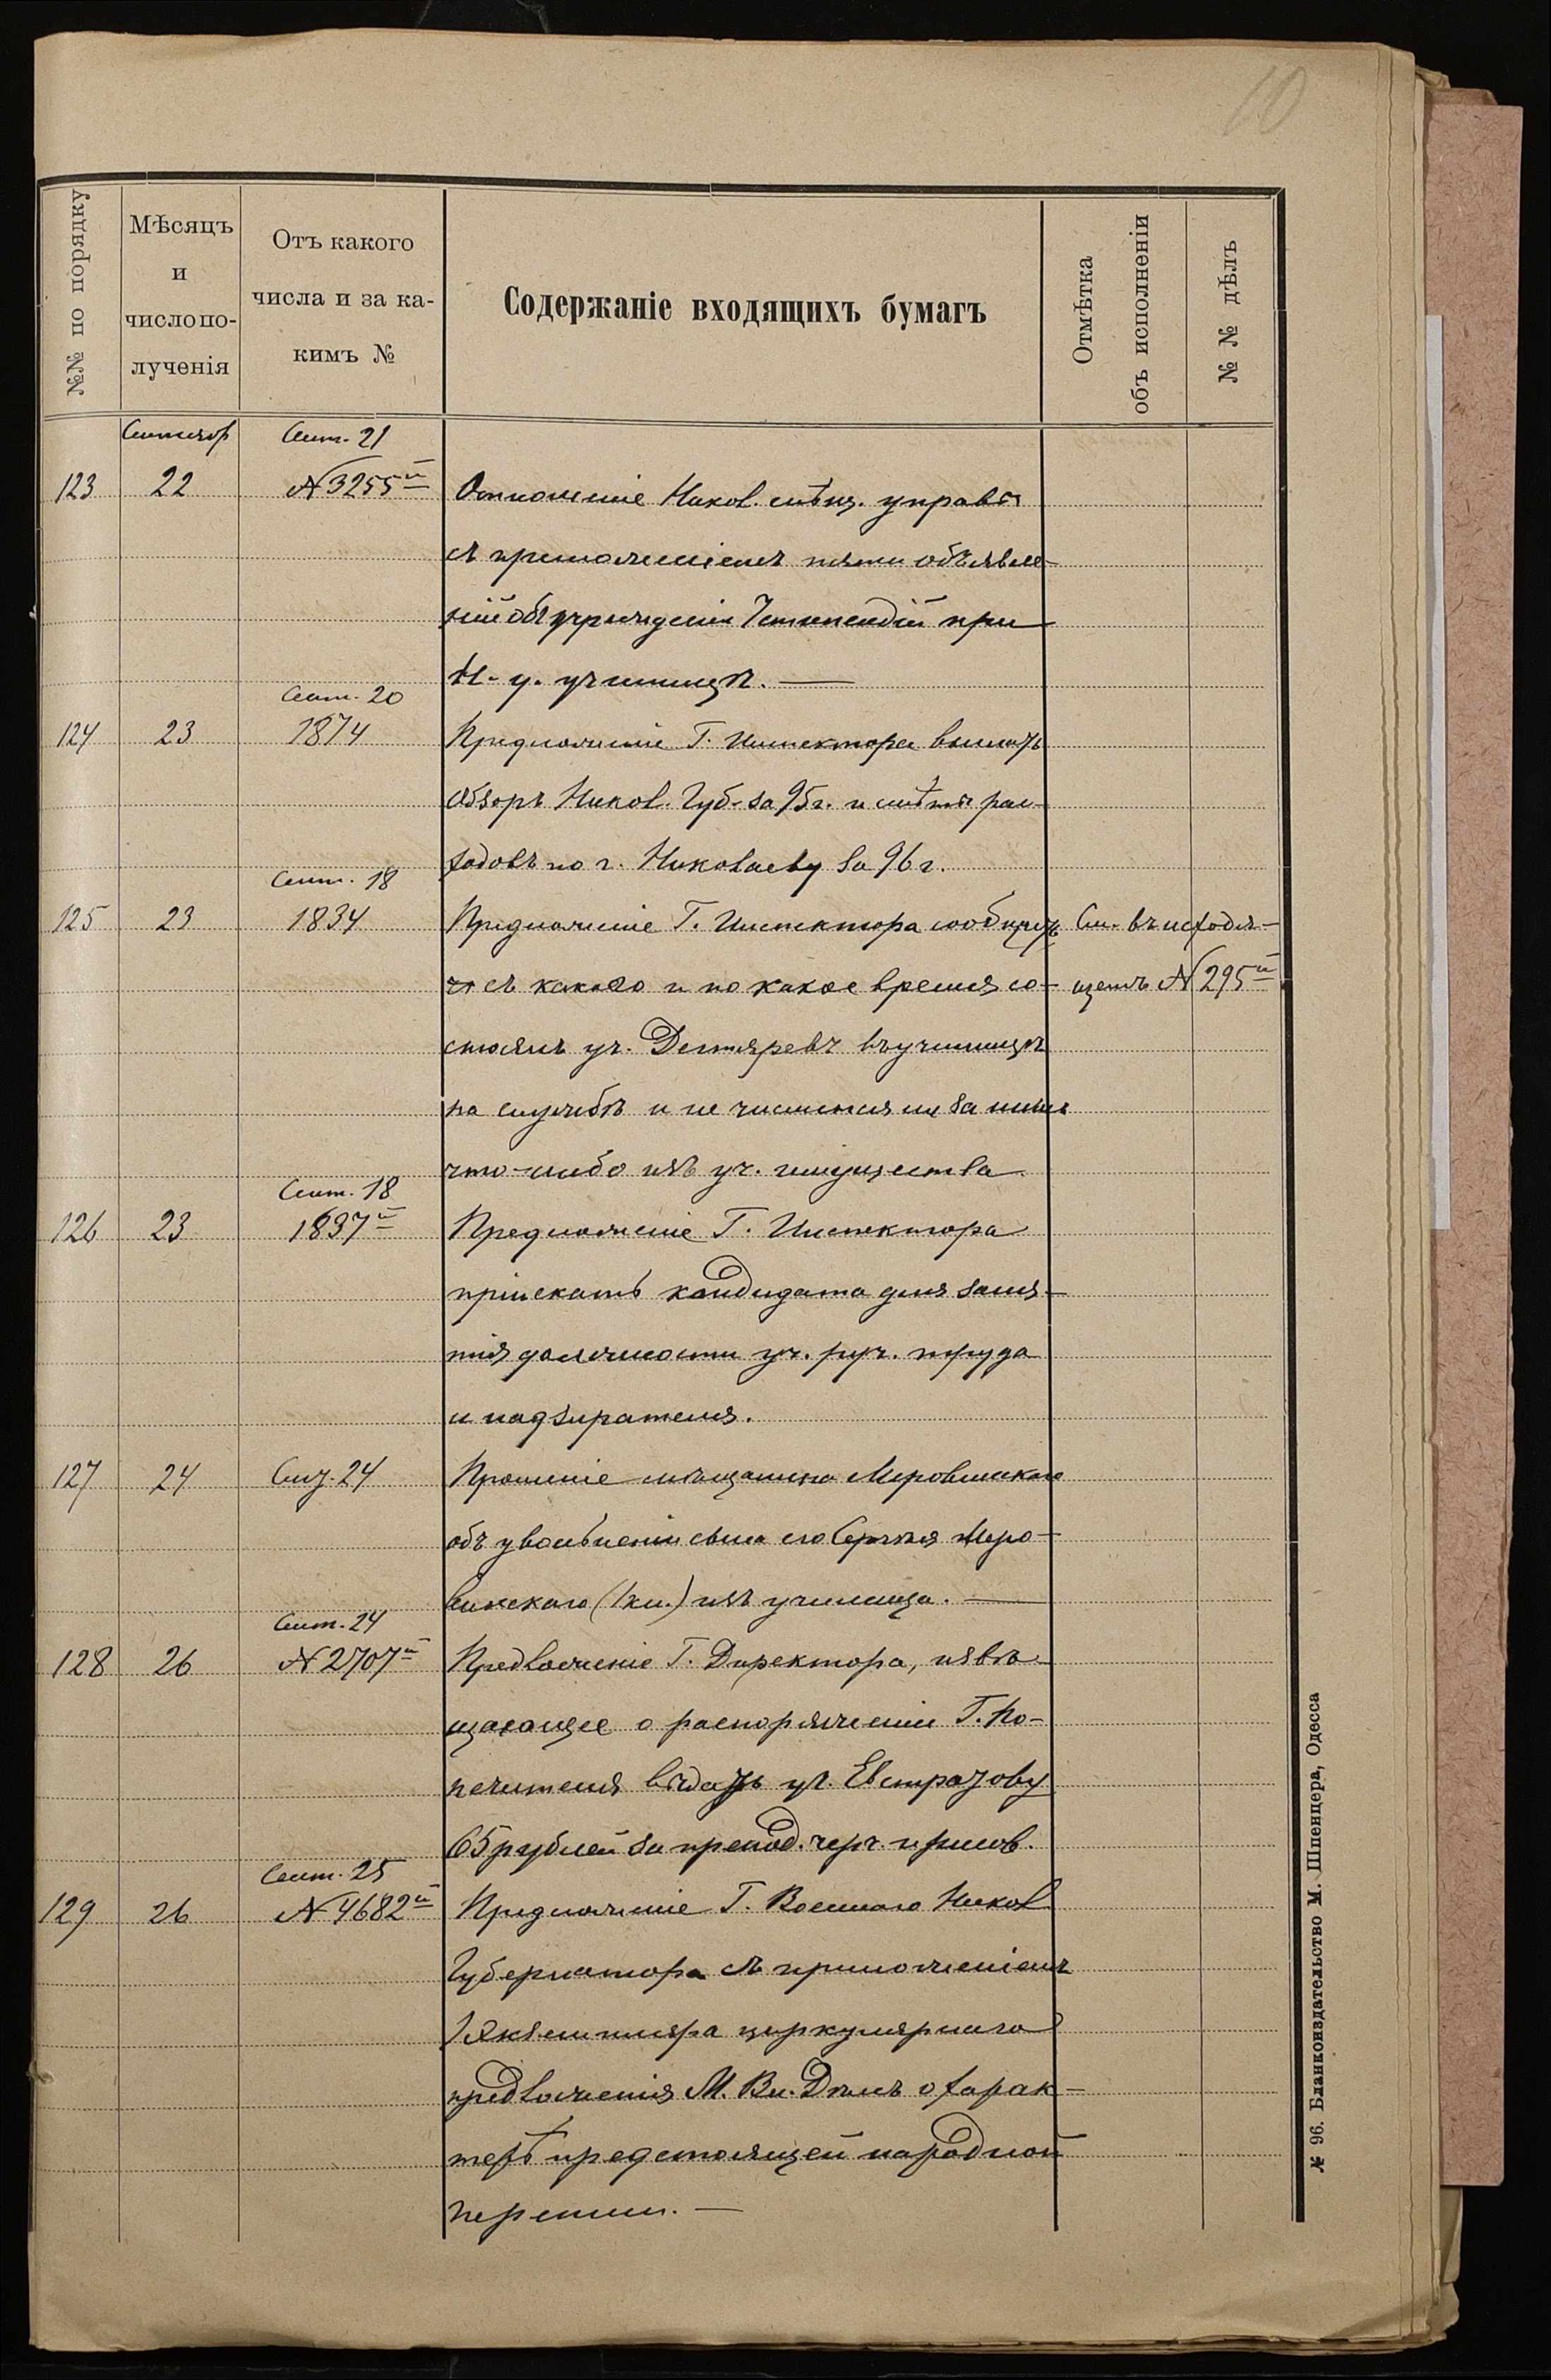 10
№№ по порядку
Мѣсяцъ
и
число по-
лученія
Отъ какого
числа и за ка-
кимъ №
Содержаніе входящихъ бумагъ
Отмѣтка
объ исполненіи
№ № дѣлъ
Сентябр Сент. 21
123 22 № 3255й Отношеніе Никол. мѣщ. управы
съ приложеніемъ пяти объявле-
ній объ учрежденіи 7 стипендій при
Н. у. училищѣ. —
Сент. 20
124 23 1874 Предложеніе Г. Инспектора выслать
Обзоръ Никол. Губ. за 95 г. и смѣты рас-
ходовъ по г. Николаеву за 96 г.
Сент. 18
125 23 1834 Предложеніе Г. Инспектора сообщить См. въ исходя-
съ какого и по какое время со- щемъ № 295й
стоялъ уч. Дегтяревъ въ училищѣ
на службѣ и не числится ли за нимъ
что-либо изъ уч. имущества
Сент. 18
126 23 1837й Предложеніе Г. Инспектора
пріискать кандидата для заня-
тія должности уч. руч. труда
и надзирателя.
127 24 Сент. 24 Прошеніе мѣщанина Меровинскаго
объ увольненіи сына его Сергѣя Меро-
винскаго (1 кл.) изъ училища. —
Сент. 24
128 26 № 2707й Предложеніе Г. Директора, извѣ-
щающее о распоряженіи Г. По-
печителя выдать уч. Евстратову
65 рублей за препод. черч. и рисов.
Сент. 25
129 26 № 4682й Предложеніе Г. Военнаго Никол
Губернатора съ приложеніемъ
1 экземпляра циркулярнаго
предложенія М. Вн. Дѣлъ о харак-
терѣ предстоящей народной
переписи. —
№ 96. Бланкоиздательство М. Шпенцера, Одесса